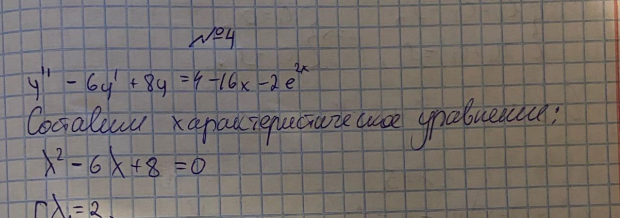 №4
y'' - 6y' + 8y = 4 - 16x - 2e^{2x}
Составим характеристическое уравнение:
λ² - 6λ + 8 = 0
λ₁ = 2